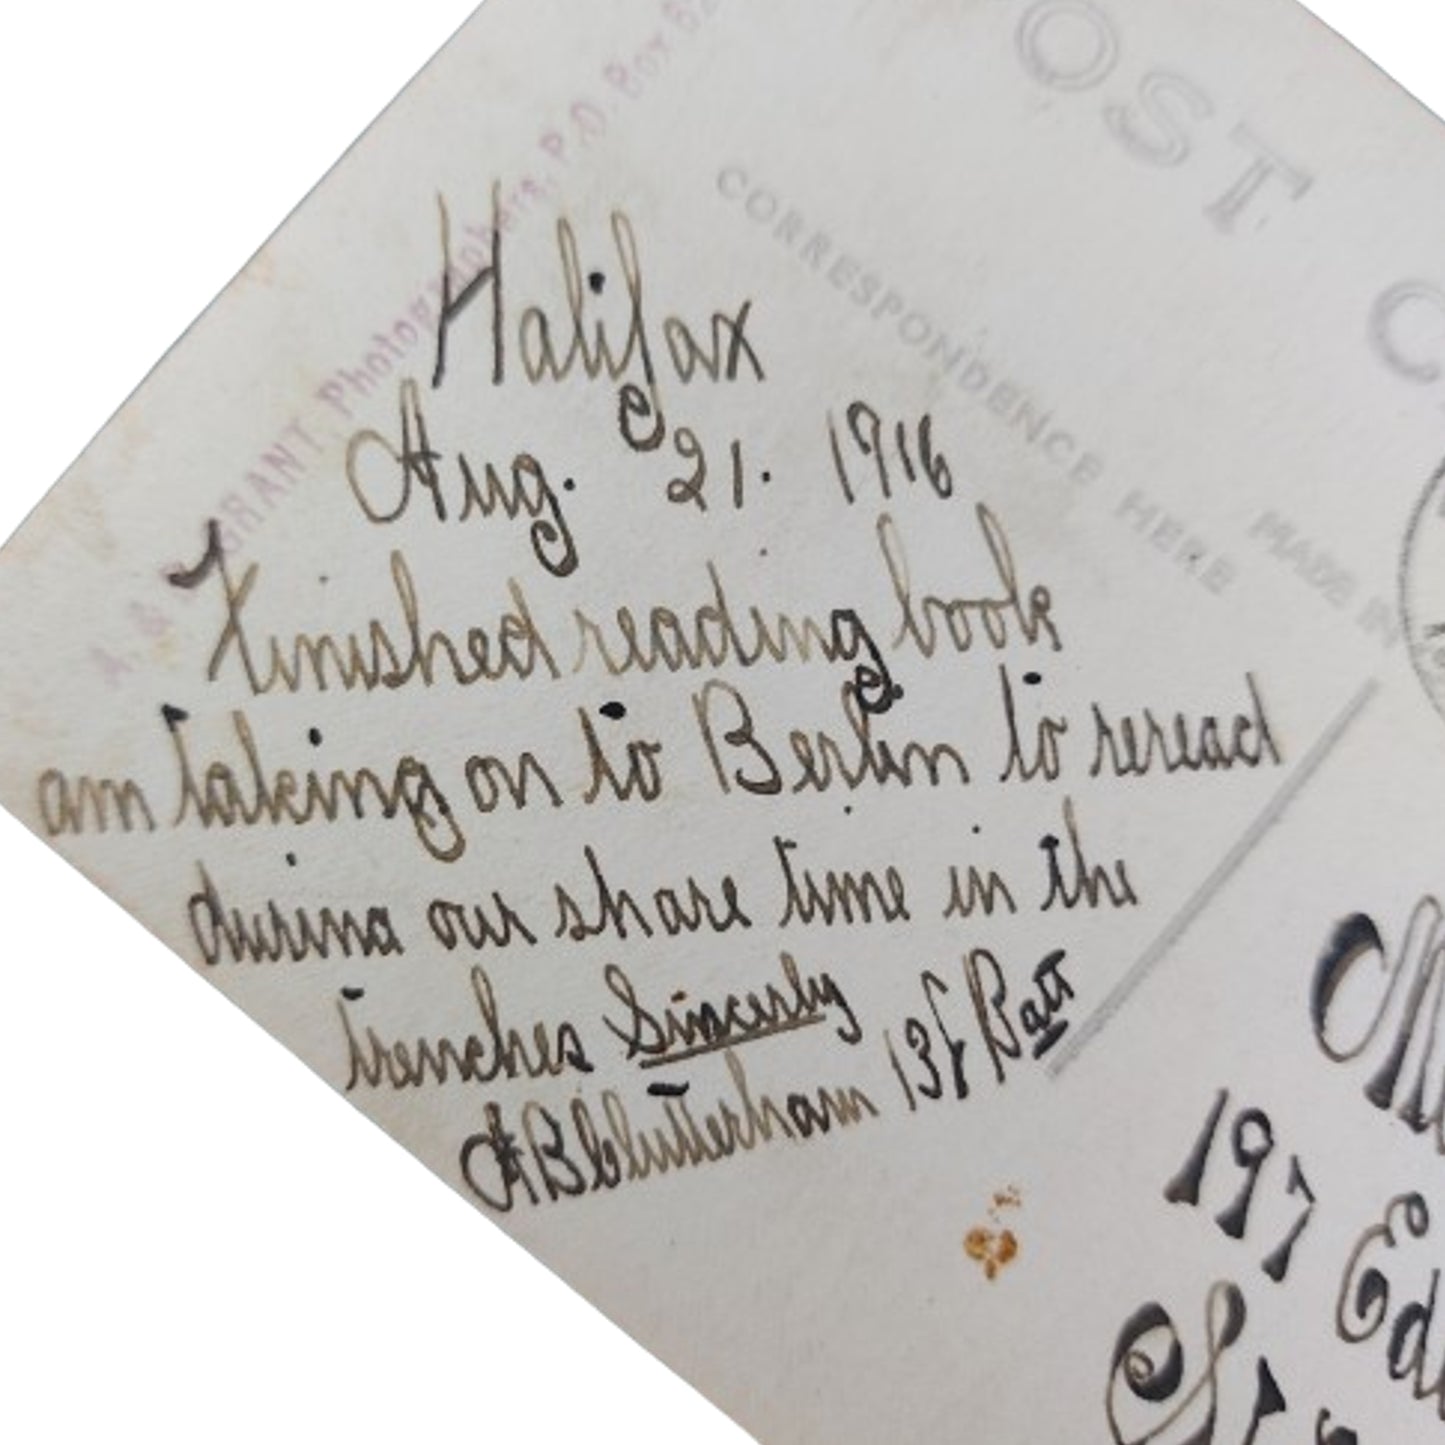 A. & GRANT Photographers, P.O. Box 62
OST C
CORRESPONDENCE HERE
MADE IN
Halifax
Aug. 21. 1916
Finished reading book
am taking on to Berlin to reread
during our share time in the
trenches Sincerly
Batt
197 Ed